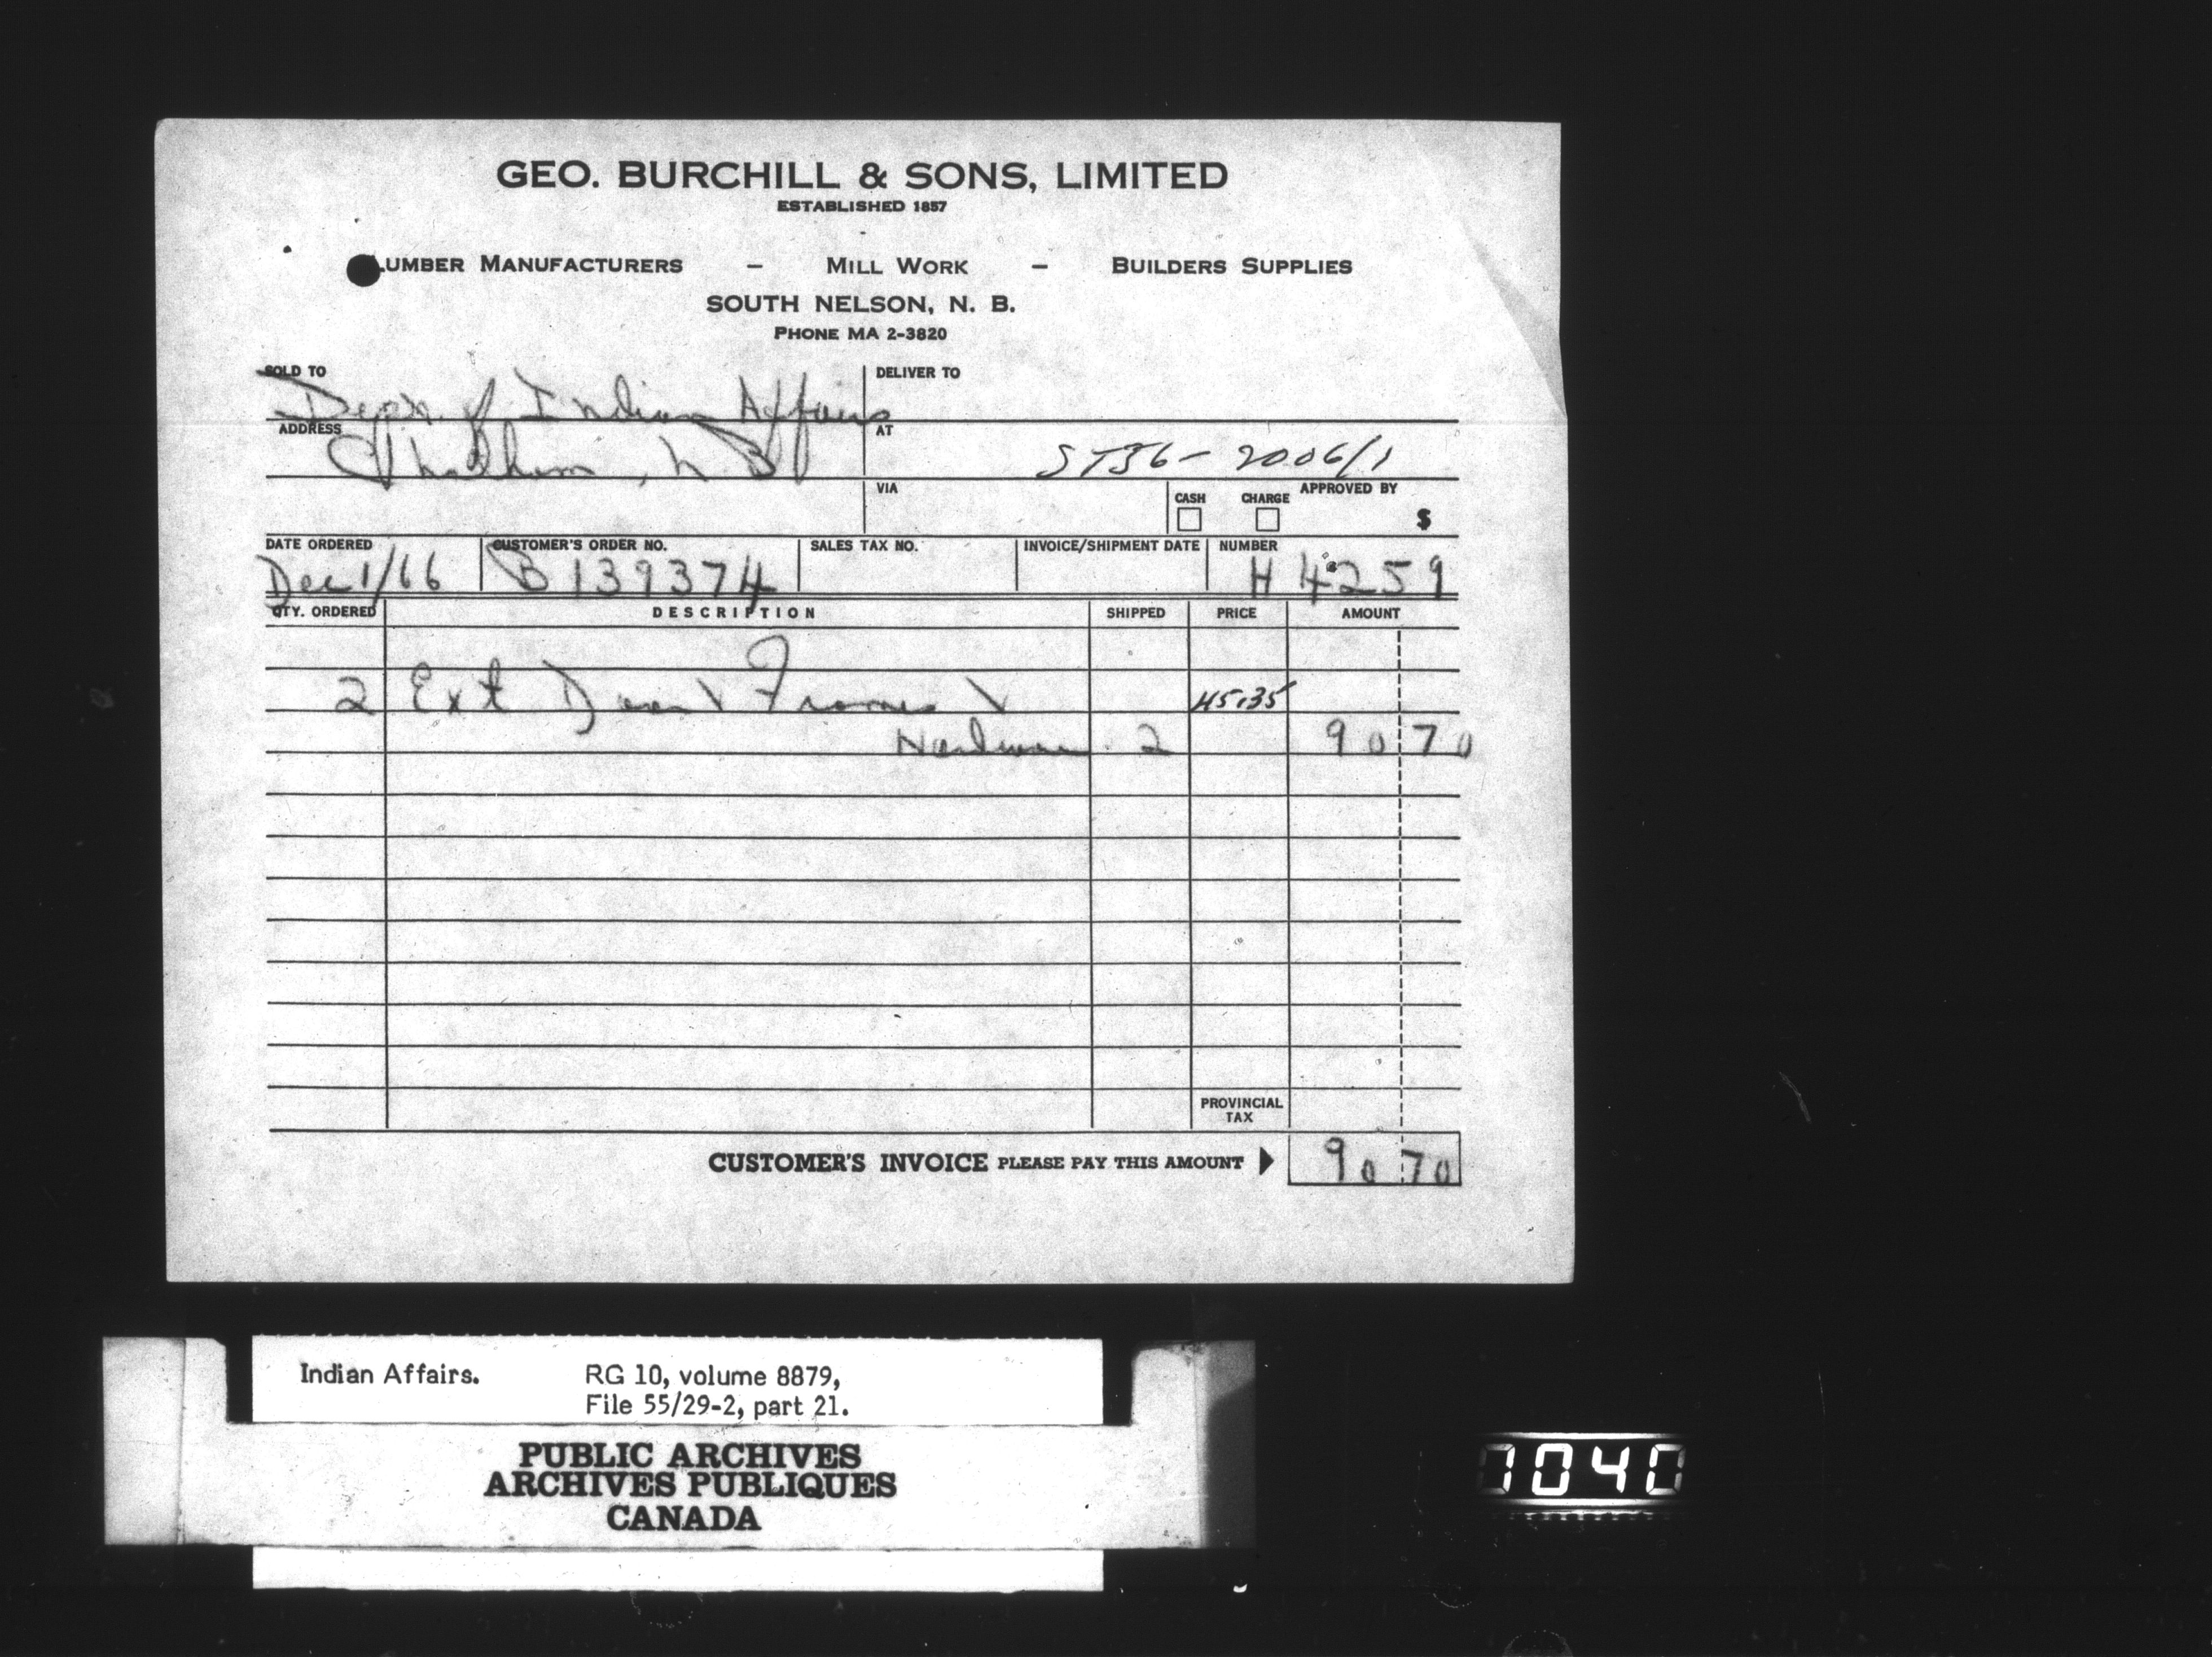 GEO. BURCHILL & SONS, LIMITED
ESTABLISHED 1857
LUMBER MANUFACTURERS – MILL WORK – BUILDERS SUPPLIES
SOUTH NELSON, N. B.
PHONE MA 2-3820
SOLD TO DELIVER TO
Dept. of Indian Affairs
ADDRESS AT
Chatham, N B ST36-2006/1
VIA CASH CHARGE APPROVED BY
$
DATE ORDERED CUSTOMER'S ORDER NO. SALES TAX NO. INVOICE/SHIPMENT DATE NUMBER
Dec 1/66 B 139374 H 4259
QTY. ORDERED DESCRIPTION SHIPPED PRICE AMOUNT
2 Ext Doors \ Frames \ 45.35
Hardware 2 90 70
PROVINCIAL
TAX
CUSTOMER'S INVOICE PLEASE PAY THIS AMOUNT 90 70
Indian Affairs. RG 10, volume 8879,
File 55/29-2, part 21.
PUBLIC ARCHIVES
ARCHIVES PUBLIQUES
CANADA
1040